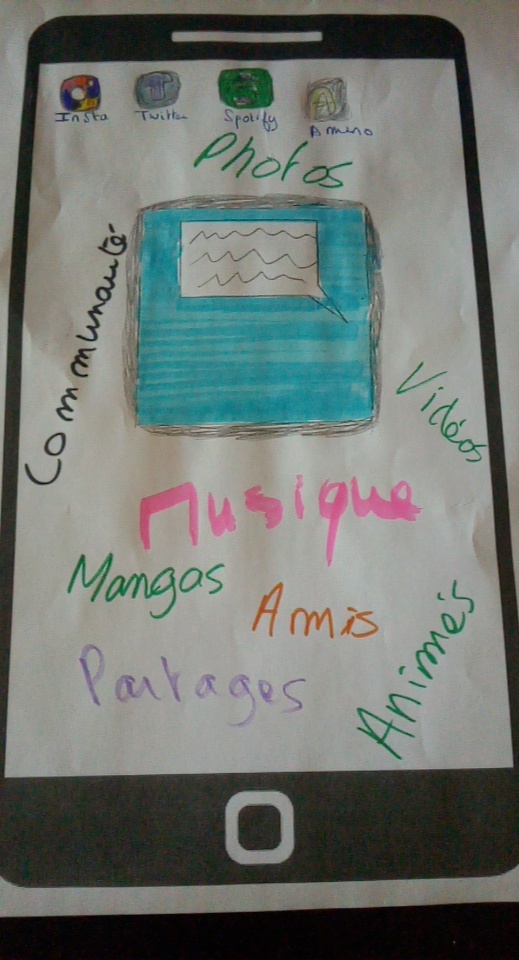 Insta Twitter Spotify Amino
Photos
Communauté
Vidéos
Musique
Mangas
Amis
Animés
Partages